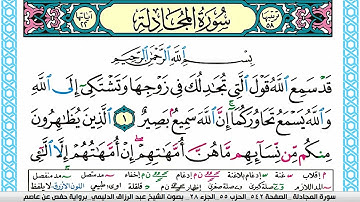 سُورَةُ المُجَادِلَة
بِسْمِ ٱللَّهِ ٱلرَّحْمَٰنِ ٱلرَّحِيمِ
قَدْ سَمِعَ ٱللَّهُ قَوْلَ ٱلَّتِي تُجَٰدِلُكَ فِي زَوْجِهَا وَتَشْتَكِىٓ إِلَى ٱللَّهِ
وَٱللَّهُ يَسْمَعُ تَحَاوُرَكُمَآ إِنَّ ٱللَّهَ سَمِيعٌۢ بَصِيرٌ ١ ٱلَّذِينَ يُظَٰهِرُونَ
مِنكُم مِّن نِّسَآئِهِم مَّا هُنَّ أُمَّهَٰتِهِمْ إِنْ أُمَّهَٰتُهُمْ إِلَّا ٱلَّٰٓـِٔي
سورة المجادلة، الصفحة ٥٤٢ الحزب ٥٥ الجزء ٢٨ بصوت الشيخ عبد الرزاق الدليمي برواية حفص عن عاصم